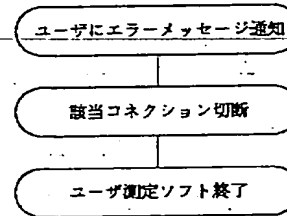 ユーザにエラーメッセージ通知
該当コネクション切断
ユーザ測定ソフト終了